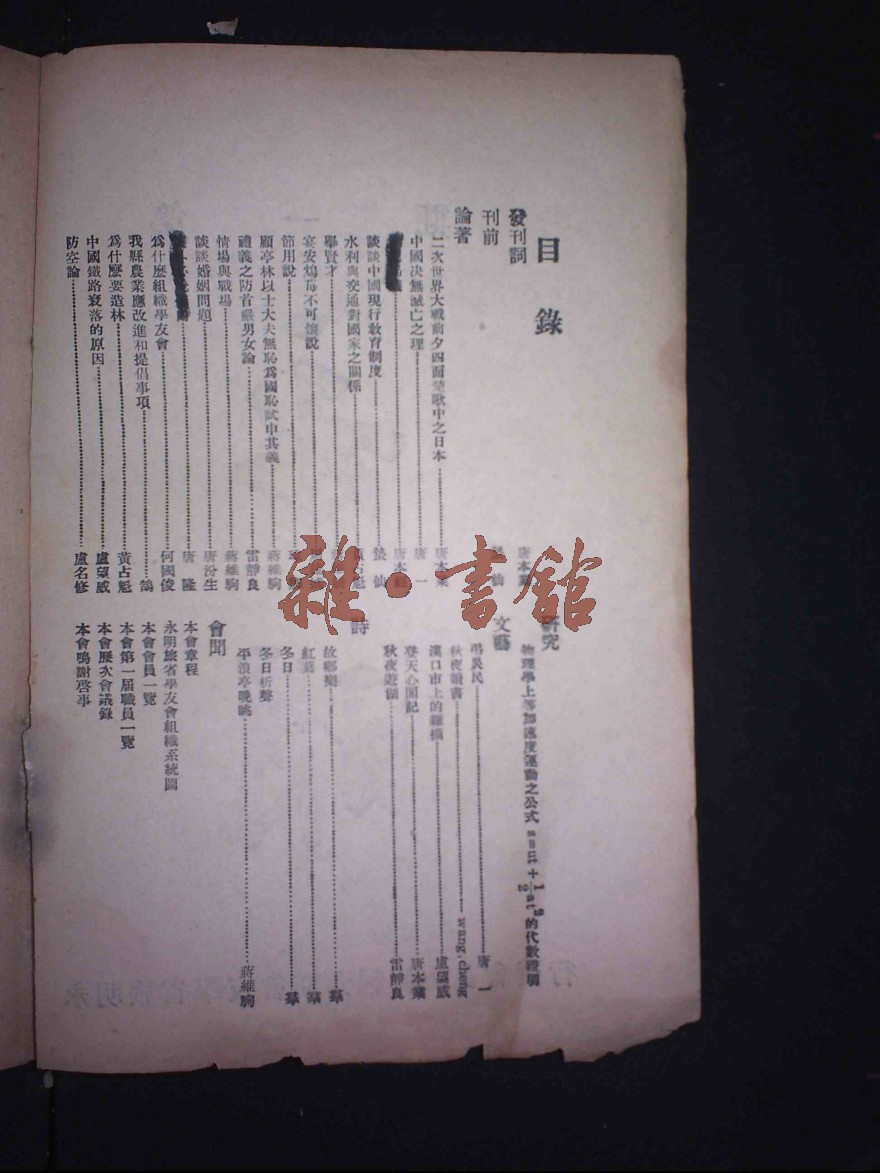 目錄
發刊詞 唐本業
刊前
論著
二次世界大戰前夕四面楚歌中之日本 唐本業
中國决無滅亡之理 唐一
唐本
談談中國現行敎育制度 蟄仙
水利與交通對國家之關係
舉賢才
宴安鴆毒不可懷說
節用說
顧亭林以士大夫無恥爲國恥試申其義 蔣維駒
禮義之防首嚴男女論 雷靜良
情場與戰場 蔣維駒
談談婚姻問題 唐汾生
唐隆
爲什麽組織學友會 何國俊
我縣農業應改進和提倡事項 鵠
爲什麽要造林 黃占魁
中國鐵路衰落的原因 盧望威
防空論 盧名修
研究
物理學上等加速度運動之公式 s=ut+½at²的代數證明
文藝
弔農民 唐一
秋夜讀書 wang.cheng
漢口市上的雜描 盧望威
登天心閣記 唐本業
秋夜遊湖 雷靜良
詩
故鄉樂 羣
紅葉 羣
冬日 羣
冬日析聲
平浪亭晚眺 蔣維駒
會聞
本會章程
永明旅省學友會組織系統圖
本會會員一覽
本會第一屆職員一覽
本會歷次會議錄
本會鳴謝啓事
雜·書館